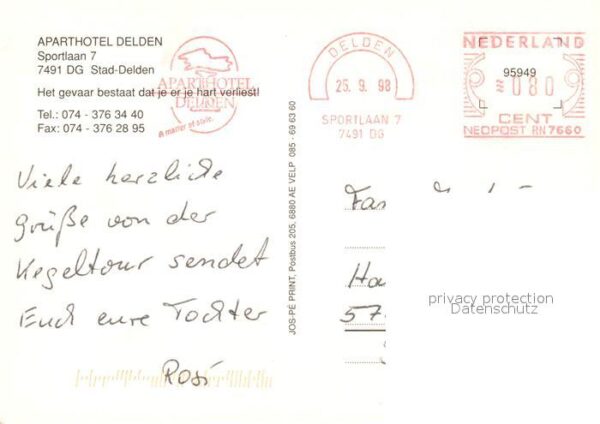 APARTHOTEL DELDEN
Sportlaan 7
7491 DG Stad-Delden
Het gevaar bestaat dat je er je hart verliest!
Tel.: 074 - 376 34 40
Fax: 074 - 376 28 95
APARTHOTEL
DELDEN
A matter of style.
DELDEN
25. 9. 98
SPORTLAAN 7
7491 DG
NEDERLAND
95949
080
CENT
NEOPOST RN 7660
Viele herzliche
Grüße von der
Kegeltour sendet
Euch eure Tochter
Rosi
JOS-PÉ PRINT, Postbus 205, 6880 AE VELP 085 - 69 63 60
Fa
Ha
57
privacy protection
Datenschutz